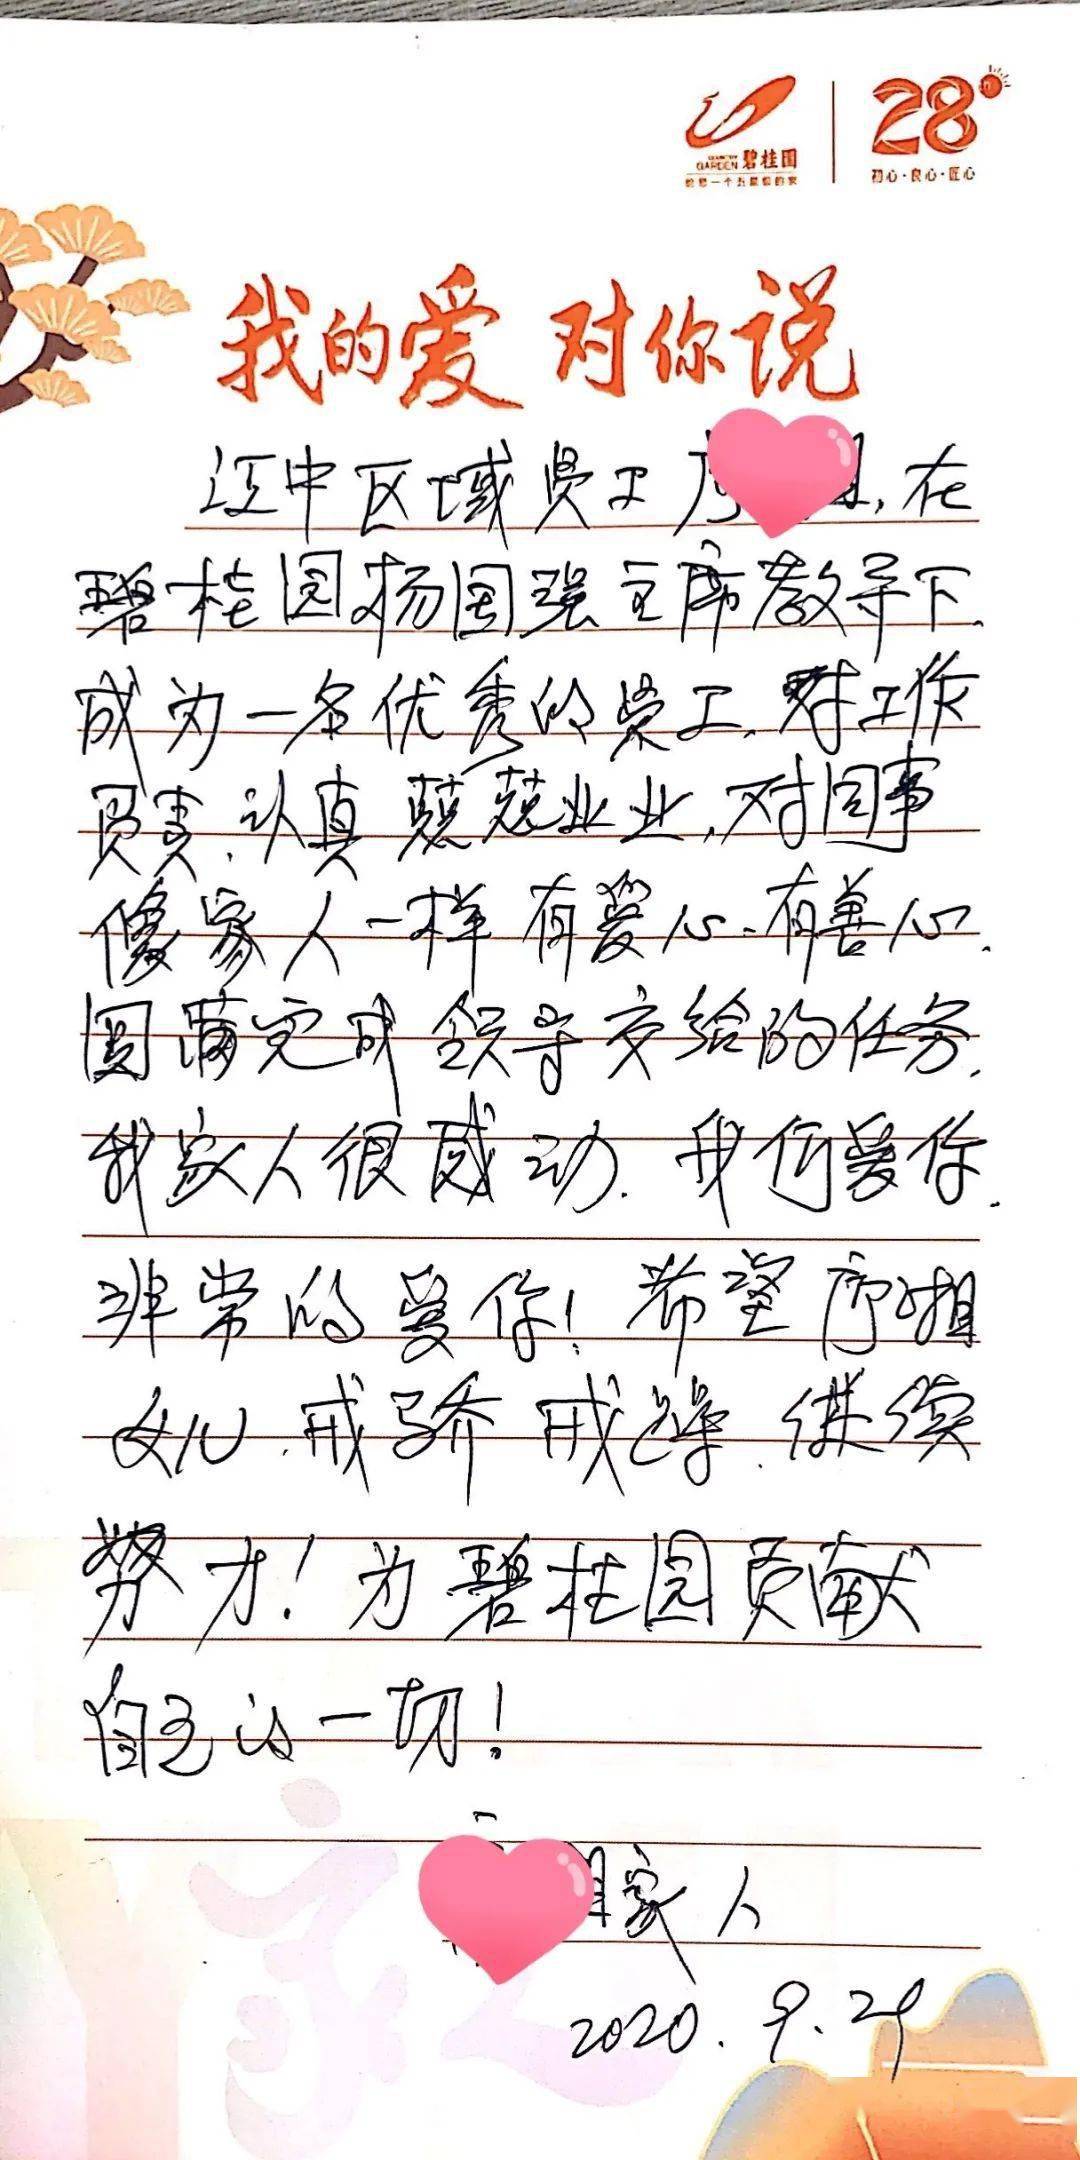 COUNTRY GARDEN 碧桂园
给您一个五星级的家
28°
初心·良心·匠心
我的爱 对你说
江中区域员工，在
碧桂园杨国强主席教导下，
成为一名优秀的员工，对工作
负责、认真 兢兢业业，对同事
像家人一样 有爱心、有善心、
圆满完成 领导交给的任务，
我家人很感动、我们爱你、
非常的爱你！希望 姐
女儿、戒骄 戒躁、继续
努力！为碧桂园贡献
自己的一切！
家人
2020.9.29